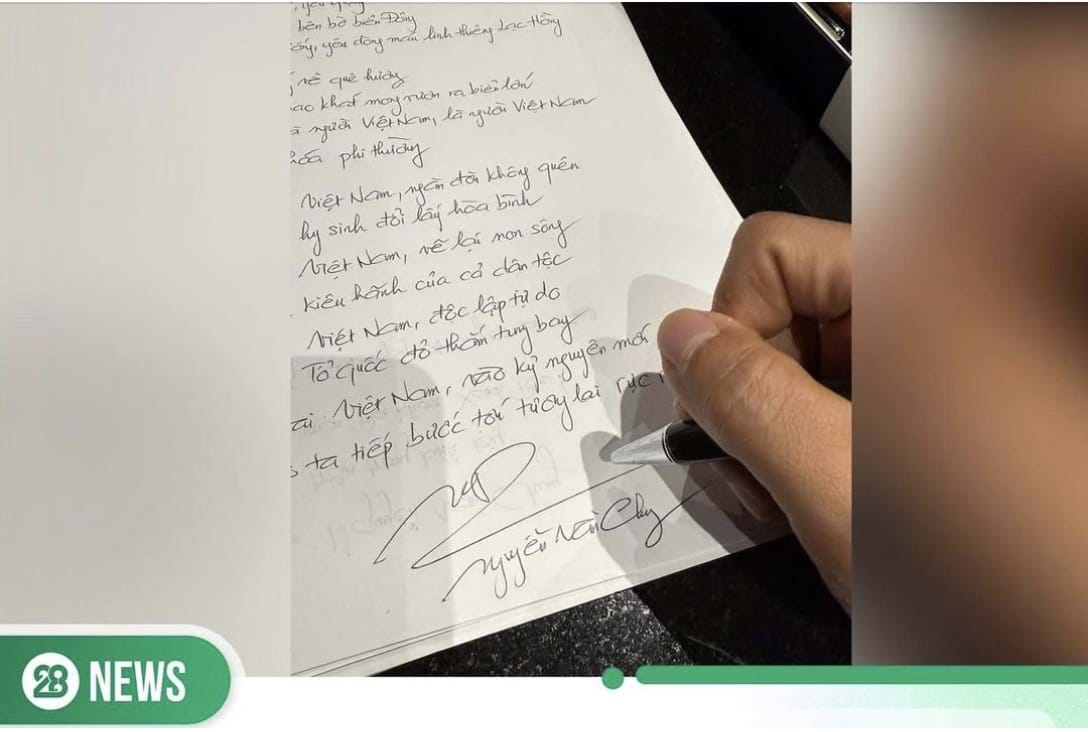 bên bờ biển Đông
yêu dòng máu linh thiêng Lạc Hồng
về quê hương
khát mong vươn ra biển lớn
người Việt Nam, là người Việt Nam
hóa phi thường
Việt Nam, ngàn đời không quên
hy sinh đổi lấy hòa bình
Việt Nam, vẽ lại non sông
kiêu hãnh của cả dân tộc
Việt Nam, độc lập tự do
Tổ quốc đỏ thắm tung bay
Việt Nam, vào kỷ nguyên mới
ta tiếp bước tới tương lai rực
Nguyễn Văn Chung
28 NEWS